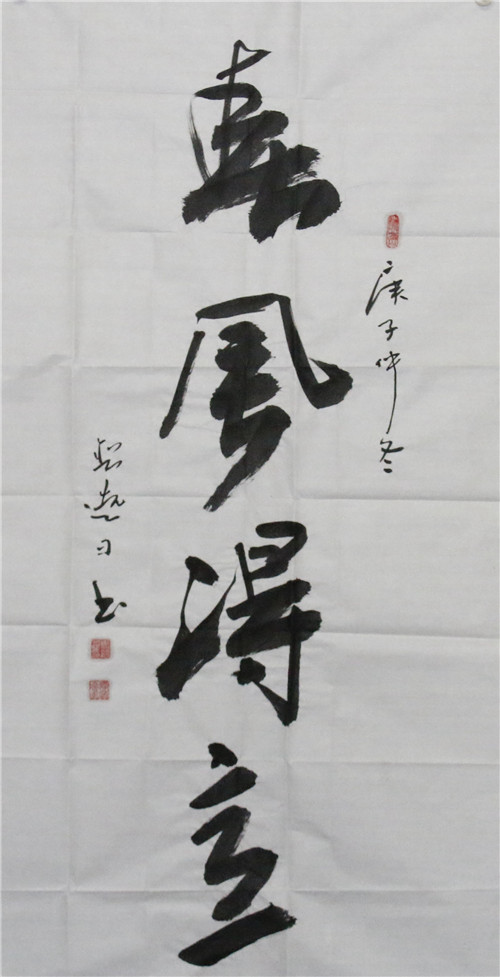 庚子仲冬
春風得意
书